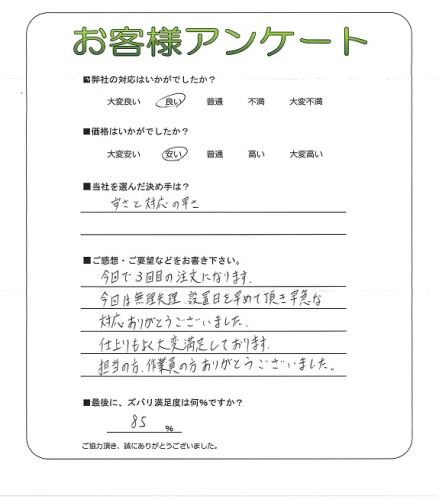 お客様アンケート
■弊社の対応はいかがでしたか?
大変良い 良い 普通 不満 大変不満
■価格はいかがでしたか?
大変安い 安い 普通 高い 大変高い
■当社を選んだ決め手は?
安さと対応の早さ
■ご感想・ご要望などをお書き下さい。
今回で3回目の注文になります。
今回は無理矢理、設置日を早めて頂き早急な
対応ありがとうございました。
仕上りもよく大変満足しております。
担当の方、作業員の方ありがとうございました。
■最後に、ズバリ満足度は何%ですか?
85 %
ご協力頂き、誠にありがとうございました。